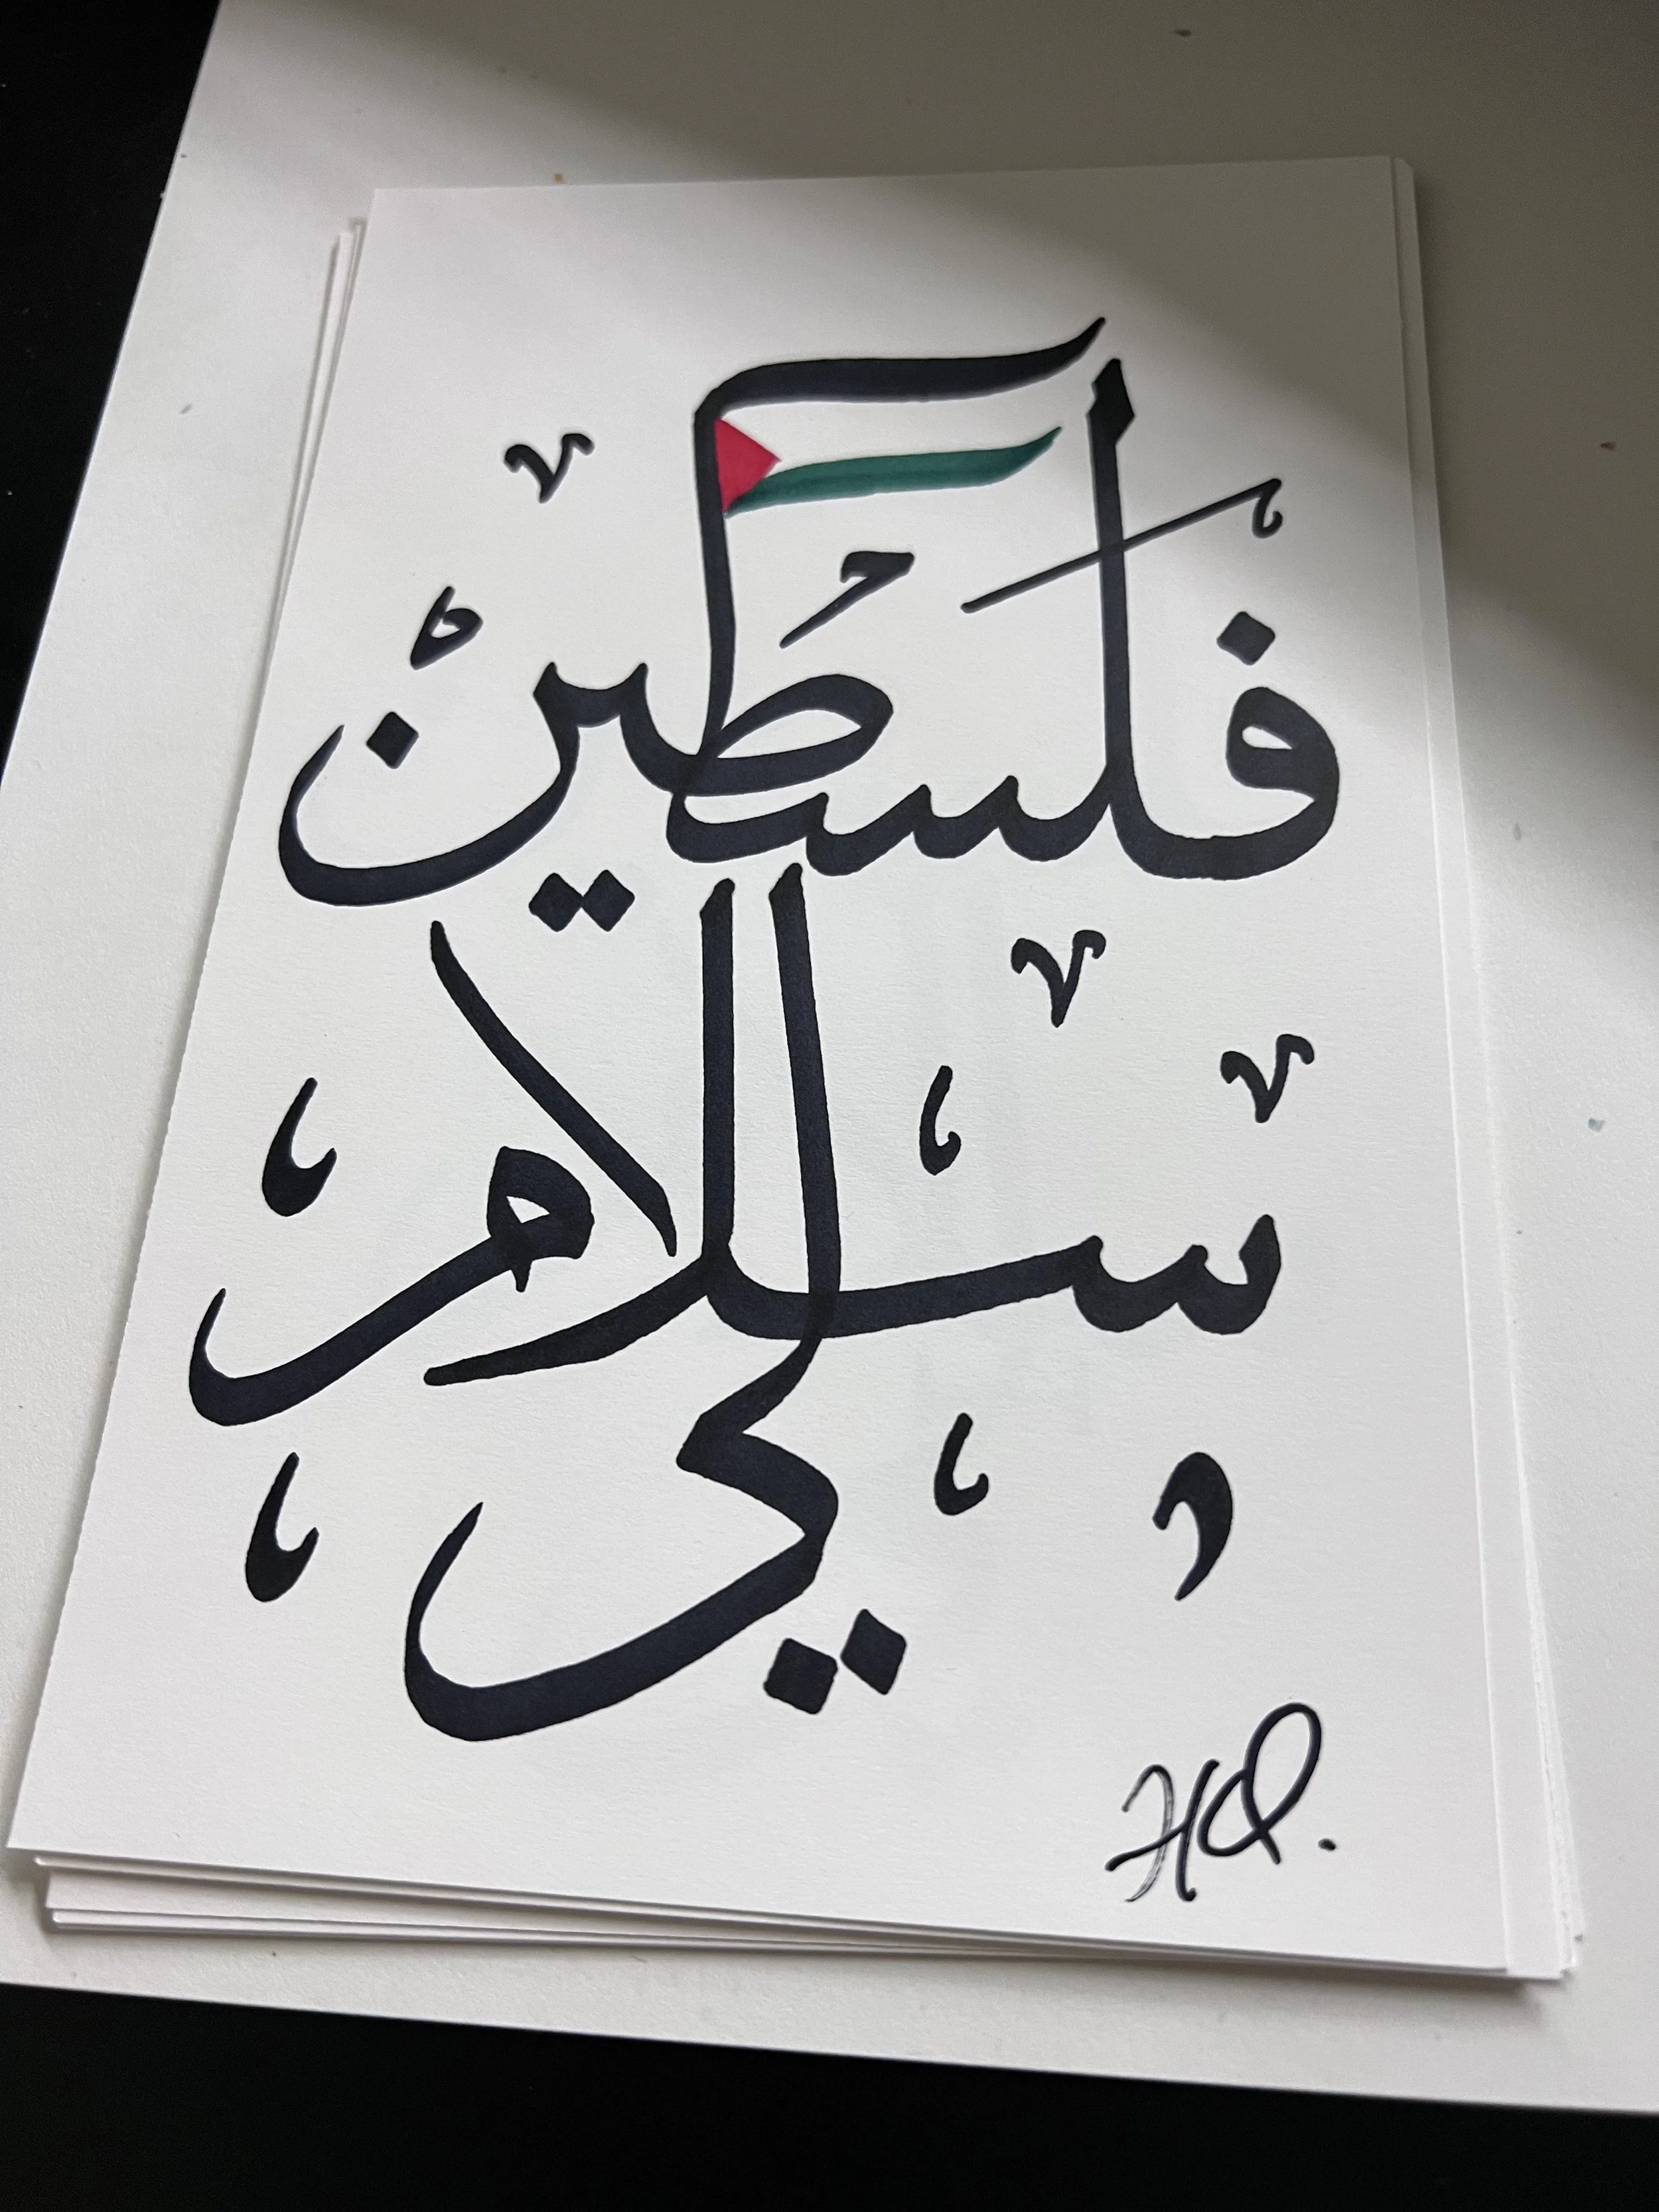 فلسطين
سلام
لي
HQ.